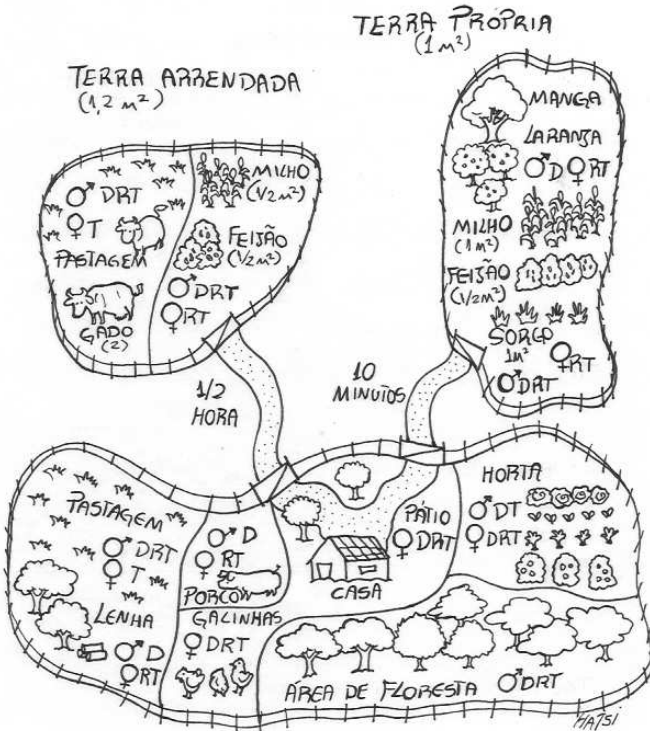 TERRA ARRENDADA
(1,2 m²)
♂ DRT
♀ T
PASTAGEM
GADO
(2)
MILHO
(1/2 m²)
FEIJÃO
(1/2 m²)
♂ DRT
♀ RT
TERRA PRÓPRIA
(1 m²)
MANGA
LARANJA
♂ D ♀ RT
MILHO
(1 m²)
FEIJÃO
(1/2 m²)
SORGO
1 m²
♀ RT
♂ DRT
1/2
HORA
10
MINUTOS
PASTAGEM
♂ DRT
♀ T
LENHA
♂ D
♀ RT
♂ D
♀ RT
PORCO
GALINHAS
♀ DRT
PÁTIO
♀ DRT
CASA
HORTA
♂ DT
♀ DRT
ÁREA DE FLORESTA ♂ DRT
HATSI